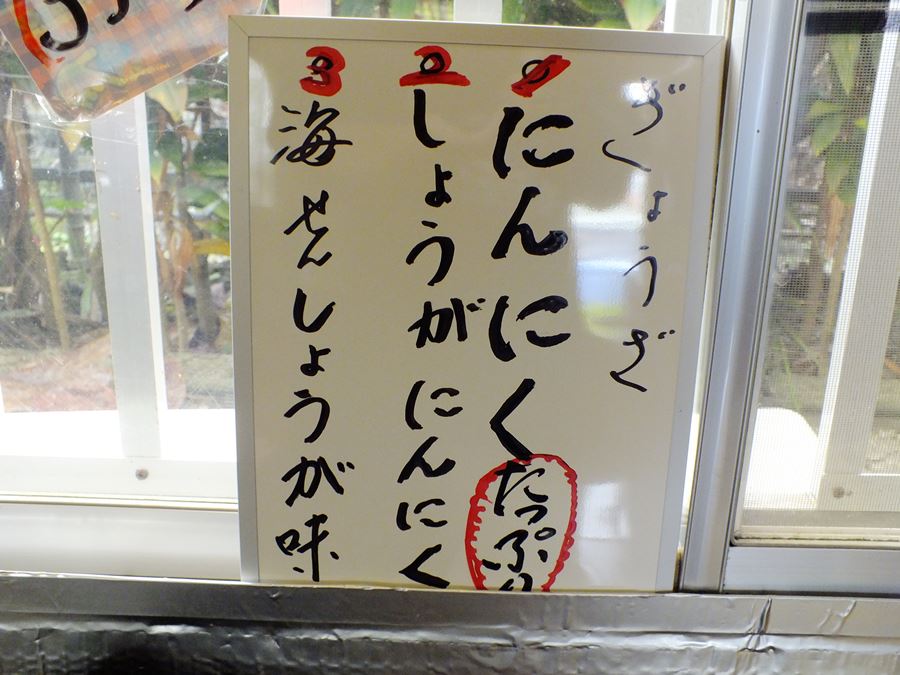 ぎょうざ
①にんにくたっぷり
②しょうがにんにく
③海せんしょうが味